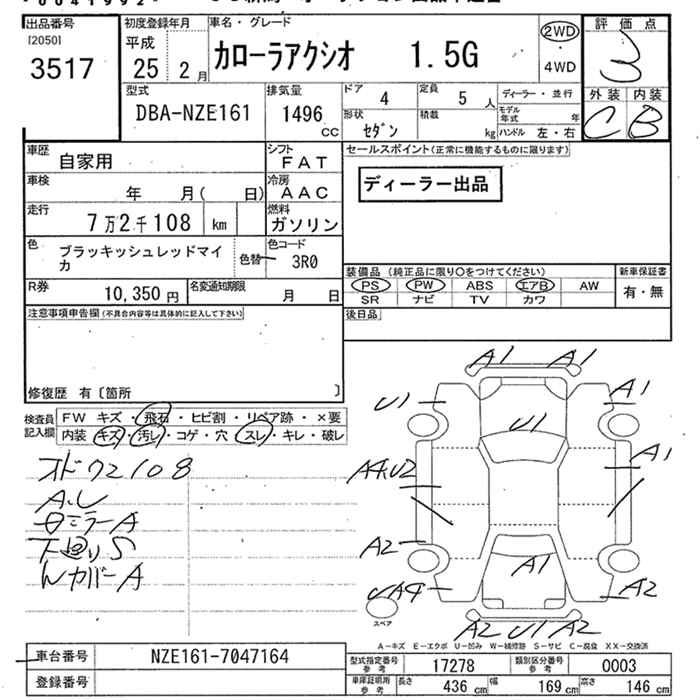 出品番号 初度登録年月 車名・グレード 評価点
[2050]
3517
平成
25 2月
カローラアクシオ 1.5G
2WD
4WD
3
型式 排気量 ドア 定員 ディーラー・並行 外装 内装
DBA-NZE161 1496 CC
4 5人
モデル年式 年
形状 積載
セダン kg ハンドル 左・右
C B
車歴 自家用
シフト FAT
セールスポイント(正常に機能するものに限ります)
車検 年 月( 日)
冷房 AAC
ディーラー出品
走行 7万2千108 km
燃料 ガソリン
色 ブラッキッシュレッドマイカ
色替
色コード 3R0
装備品(純正品に限り○をつけてください) 新車保証書
PS PW ABS エアB AW 有・無
SR ナビ TV カワ
R券 10,350円
名変通知期限 月 日
後日品
注意事項申告欄(不具合内容等は具体的に記入して下さい)
修復歴 有〔箇所 〕
検査員記入欄
FW キズ・飛石・ヒビ割・リペア跡・×要
内装 キズ・汚レ・コゲ・穴・スレ・キレ・破レ
オドウ2108
A.U
日ミラーA
下廻りS
WカバーA
A1 A1
U1 A1
U1
A1
A2
A1
A2
A2 U1 A2
スペア
A-キズ E-エクボ U-凹み W-補修跡 S-サビ C-腐食 XX-交換済
車台番号 NZE161-7047164
型式指定番号 参考 17278
類別区分番号 参考 0003
登録番号
車庫証明所 参考 長さ 436 cm 幅 169 cm 高さ 146 cm